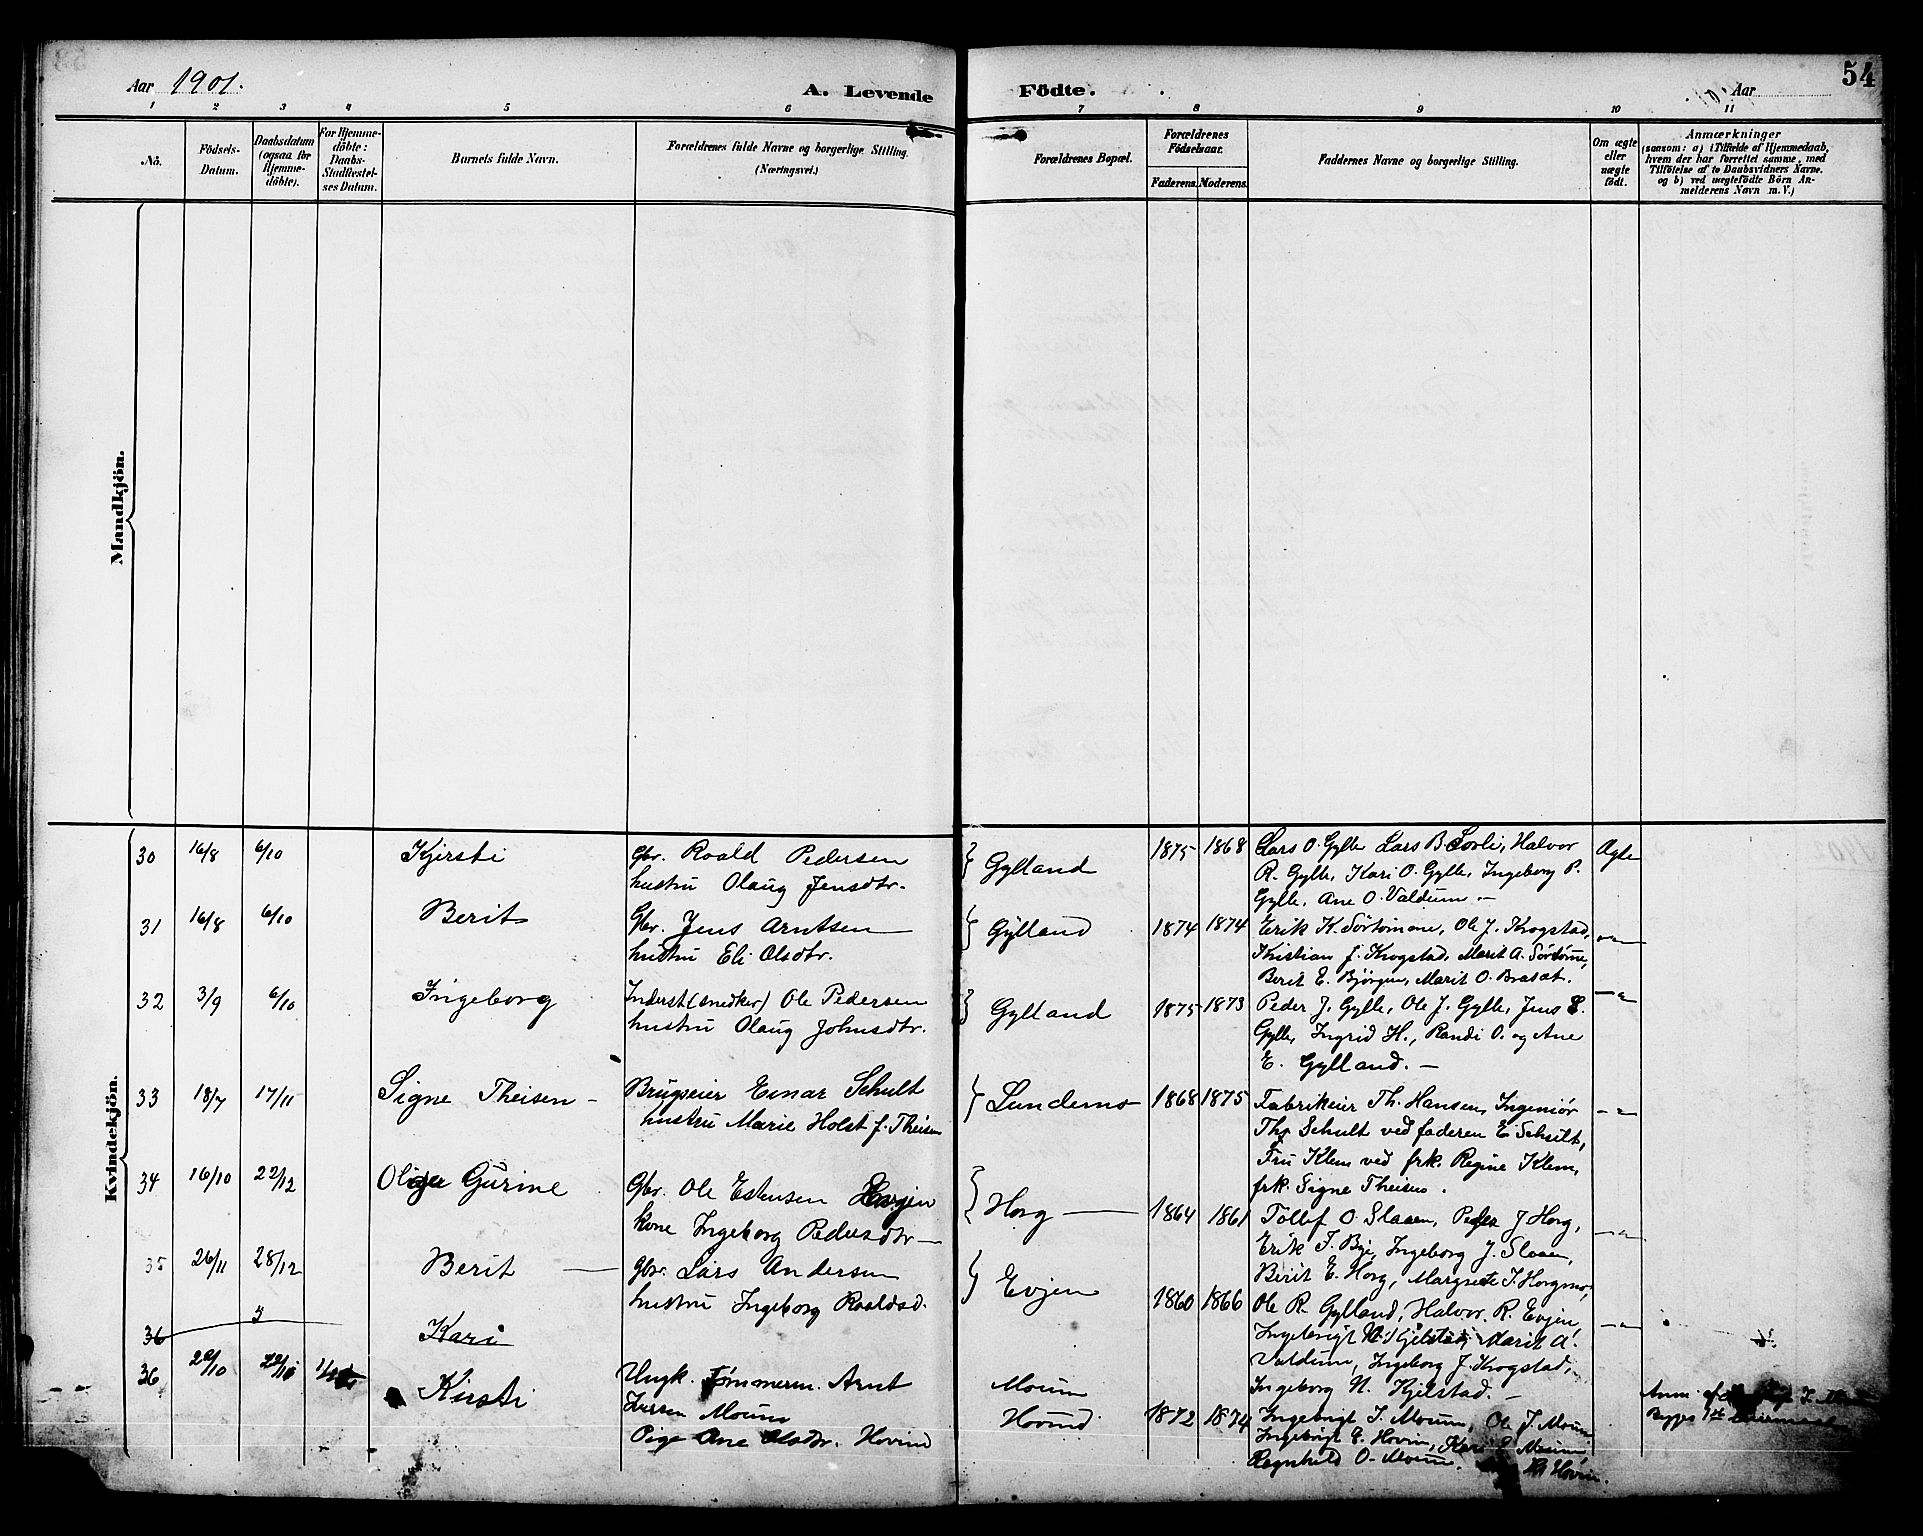 Aar 1901.
A. Levende Födte.
Aar
54
1 2 3 4 5 6 7 8 9 10 11
No.
Födsels-Datum.
Daabsdatum (ogsaa for Hjemme-döbte).
For Hjemme-döbte: Daabs-Stadfestel-ses Datum.
Barnets fulde Navn.
Forældrenes fulde Navne og borgerlige Stilling. (Næringsvei.)
Forældrenes Bopæl.
Forældrenes Födselsaar.
Faderens. Moderens.
Faddernes Navne og borgerlige Stilling.
Om ægte eller uægte födt.
Anmærkninger
(saasom: a) i Tilfælde af Hjemmedaab,
hvem der har forrettet samme, med
Tilföielse af to Daabsvidners Navne.
og b) ved uægtefödte Börn An-
melderens Navn m. V.)
Mandkjön.
Kvindekjön.
30 16/8 6/10 Kjersti
Gbr. Roald Pedersen
hustru Olaug Jensdtr.
Gylland 1875 1868
Lars O. Gylle Lars B. Sorli, Halvor
R. Gylle, Kari O. Gylle, Ingeborg P.
Gylle, Ane O. Valdum. —
Ægte
31 16/8 6/10 Berit
Gbr. Jens Arntsen
hustru Eli Olsdtr.
Gylland 1874 1874
Erik K. Sörtömme, Ole J. Krogstad,
Kristian J. Krogstad, Marit A. Sörtömme,
Berit E. Bjørgen, Marit O. Brasat.
—"—
32 3/9 6/10 Ingeborg
Inderst (snedker) Ole Pedersen
hustru Olaug Johnsdtr.
Gylland 1875 1873
Peder J. Gylle, Ole J. Gylle, Jens E.
Gylle, Ingrid H., Randi O. og Ane
E. Gylland. —
—"—
33 18/7 17/11 Signe Theisen —
Brugseier Einar Schult
hustru Marie Holst f. Theisen
Lundemo 1868 1875
Fabrikeier Th. Hansen, Ingeniør
Th. Schult ved faderen E Schult,
Fru Klem ved frk. Regine Klem,
frk. Signe Theisen.
—"—
34 16/10 22/12 Gurine
Gbr. Ole Estensen
kone Ingeborg Pedersdtr —
Horg — 1864 1861
Tollef O. Slaaen, Peder J Horg,
Erik F. Bye, Ingeborg J. Slaaen,
Berit E. Horg, Margrete J. Horgmo,
—"—
35 26/11 28/12 Berit —
Gbr. Lars Andersen
hustru Ingeborg Roaldsd.
Evjen 1860 1866
Ole R. Gylland, Halvor R. Evjen,
Ingebrigt N. Kjelstad, Marit A.
Valdum, Ingeborg J. Krogstad,
Ingeborg N. Kjelstad. —
—"—
36 Kari
36 Kirsti
Ungk. Tømmerm. Arnt
Iversen Moum
Pige Ane Olsdtr. Hovind
Moum
Hovind 1872 1874
Ingebrigt I. Moum, Ole I. Moum
Ingebrigt E. Hovin, Kari E. Moum,
Ragnhild O. Moum. Hovin.